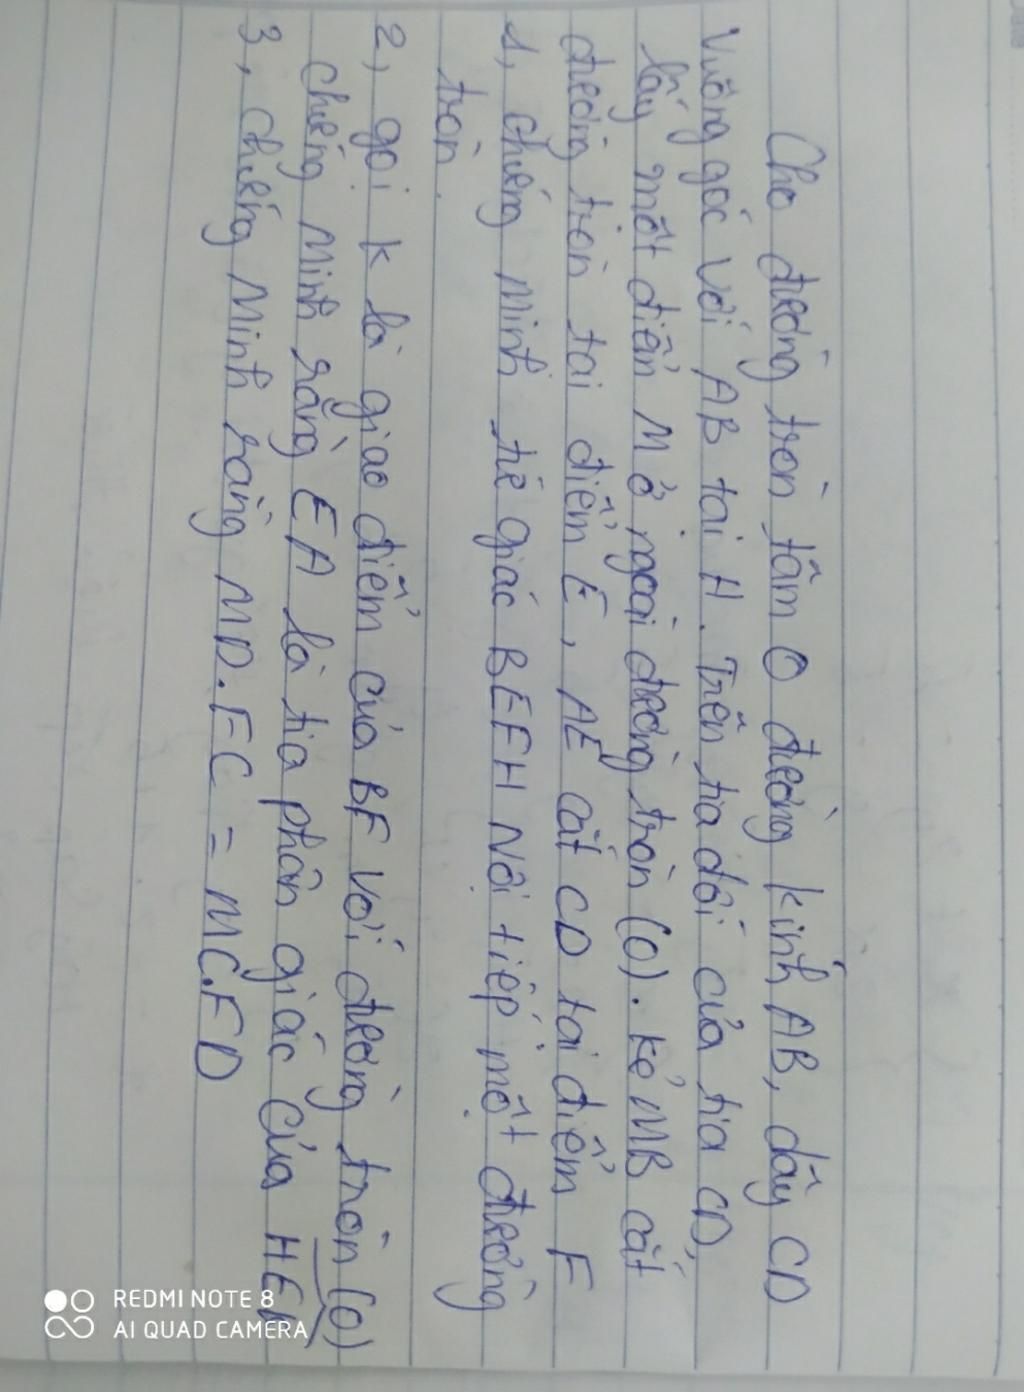 Cho đường tròn tâm O đường kính AB, dây CD
vuông góc với AB tại H. Trên tia đối của tia CD,
lấy một điểm M ở ngoài đường tròn (O). kẻ MB cắt
đường tròn tại điểm E, AE cắt CD tại điểm F
1, chứng minh tứ giác BEFH Nội tiếp một đường
tròn.
2, gọi k là giao điểm của BF với đường tròn (O)
chứng minh rằng EA là tia phân giác của HEK
3, chứng minh rằng MD.FC = MC.FD
REDMI NOTE 8
AI QUAD CAMERA